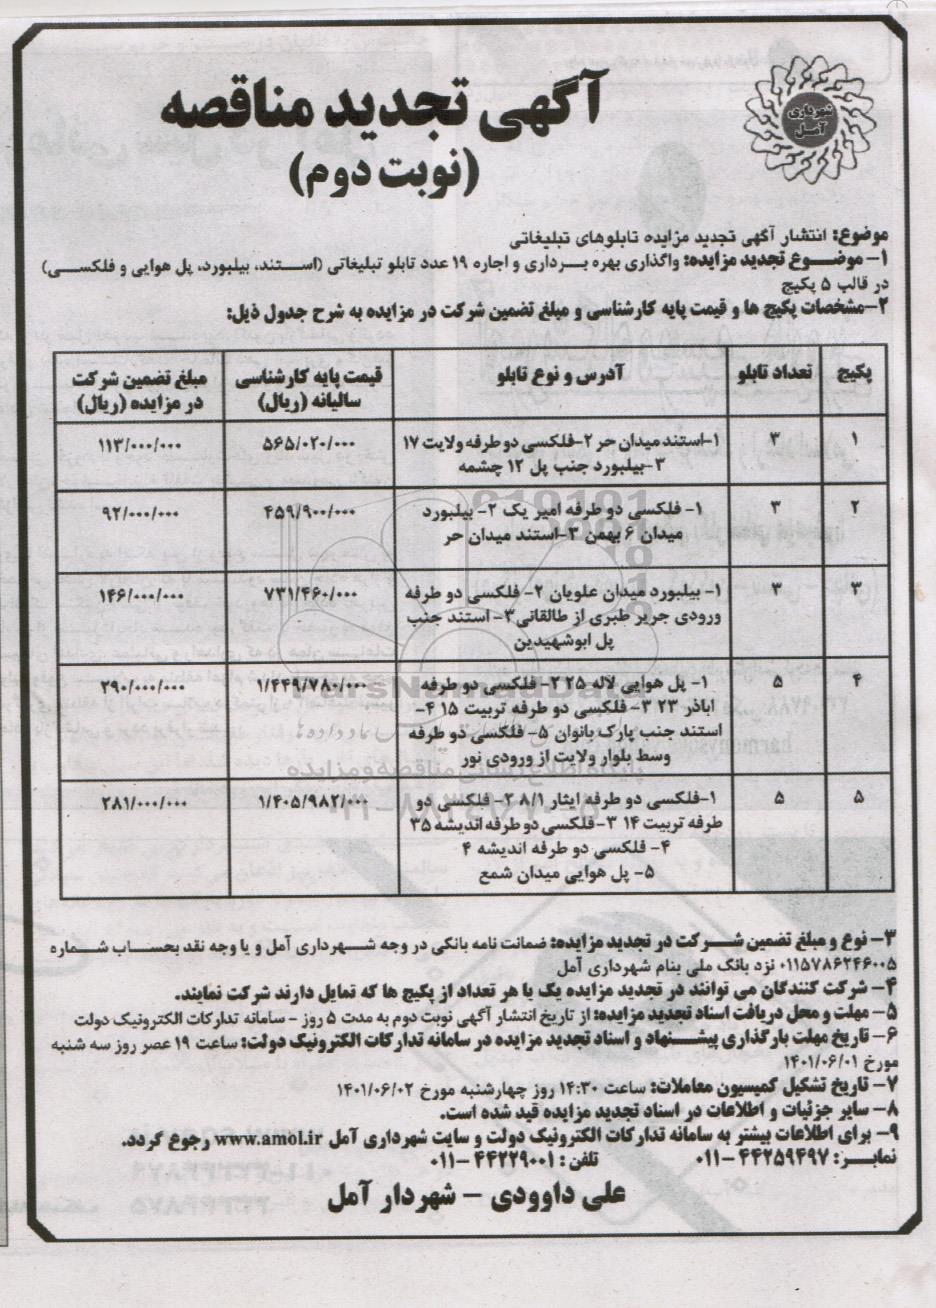 شهرداری آمل
آگهی تجدید مناقصه
(نوبت دوم)
موضوع: انتشار آگهی تجدید مزایده تابلوهای تبلیغاتی
۱- موضوع تجدید مزایده: واگذاری بهره برداری و اجاره ۱۹ عدد تابلو تبلیغاتی (استند، بیلبورد، پل هوایی و فلکسی)
در قالب ۵ پکیج
۲-مشخصات پکیج ها و قیمت پایه کارشناسی و مبلغ تضمین شرکت در مزایده به شرح جدول ذیل:
پکیج تعداد تابلو آدرس و نوع تابلو قیمت پایه کارشناسی سالیانه (ریال) مبلغ تضمین شرکت در مزایده (ریال)
۱ ۳ ۱-استند میدان حر ۲-فلکسی دو طرفه ولایت ۱۷ ۵۶۵/۰۲۰/۰۰۰ ۱۱۳/۰۰۰/۰۰۰
۳-بیلبورد جنب پل ۱۲ چشمه
۲ ۳ ۱- فلکسی دو طرفه امیر یک ۲- بیلبورد ۴۵۹/۹۰۰/۰۰۰ ۹۲/۰۰۰/۰۰۰
میدان ۶ بهمن ۳-استند میدان حر
۳ ۳ ۱- بیلبورد میدان علویان ۲- فلکسی دو طرفه ۷۳۱/۴۶۰/۰۰۰ ۱۴۶/۰۰۰/۰۰۰
ورودی جریر طبری از طالقانی ۳- استند جنب
پل ابوشهیدین
۴ ۵ ۱- پل هوایی لاله ۲۵ ۲- فلکسی دو طرفه ۱/۴۴۹/۷۸۰/۰۰۰ ۲۹۰/۰۰۰/۰۰۰
اباذر ۲۳ ۳- فلکسی دو طرفه تربیت ۱۵ ۴-
استند جنب پارک بانوان ۵- فلکسی دو طرفه
وسط بلوار ولایت از ورودی نور
۵ ۵ ۱-فلکسی دو طرفه ایثار ۸/۱ ۲- فلکسی دو ۱/۴۰۵/۹۸۲/۰۰۰ ۲۸۱/۰۰۰/۰۰۰
طرفه تربیت ۱۴ ۳-فلکسی دو طرفه اندیشه ۳۵
۴- فلکسی دو طرفه اندیشه ۴
۵- پل هوایی میدان شمع
۳- نوع و مبلغ تضمین شرکت در تجدید مزایده: ضمانت نامه بانکی در وجه شهرداری آمل و یا وجه نقد بحساب شماره
۰۱۱۵۷۸۶۲۴۶۰۰۵ نزد بانک ملی بنام شهرداری آمل
۴- شرکت کنندگان می توانند در تجدید مزایده یک یا هر تعداد از پکیج ها که تمایل دارند شرکت نمایند.
۵- مهلت و محل دریافت اسناد تجدید مزایده: از تاریخ انتشار آگهی نوبت دوم به مدت ۵ روز - سامانه تدارکات الکترونیک دولت
۶- تاریخ مهلت بارگذاری پیشنهاد و اسناد تجدید مزایده در سامانه تدارکات الکترونیک دولت: ساعت ۱۹ عصر روز سه شنبه
مورخ ۱۴۰۱/۰۶/۰۱
۷- تاریخ تشکیل کمیسیون معاملات: ساعت ۱۴:۳۰ روز چهارشنبه مورخ ۱۴۰۱/۰۶/۰۲
۸- سایر جزئیات و اطلاعات در اسناد تجدید مزایده قید شده است.
۹- برای اطلاعات بیشتر به سامانه تدارکات الکترونیک دولت و سایت شهرداری آمل www.amol.ir رجوع گردد.
نمابر: ۴۴۲۵۹۴۹۷-۰۱۱ تلفن: ۴۴۲۲۹۰۰۱-۰۱۱
علی داوودی - شهردار آمل